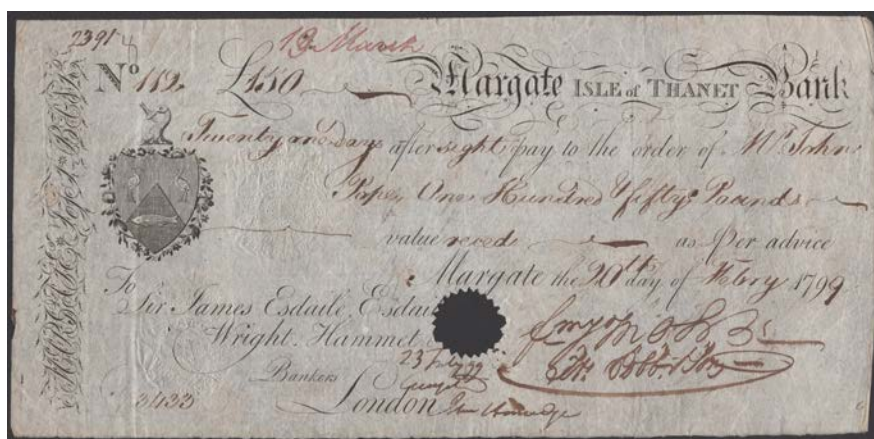 2391
13 March
No 112. £150 Margate ISLE of THANET Bank
Twenty one days after sight pay to the order of Mr. John
Pope, One Hundred & fifty Pounds
value reced as Per advice
Margate the 20th day of Febry 1799
To
Sir James Esdaile, Esdaile
Wright. Hammet
23 Feby
Bankers
London
3433